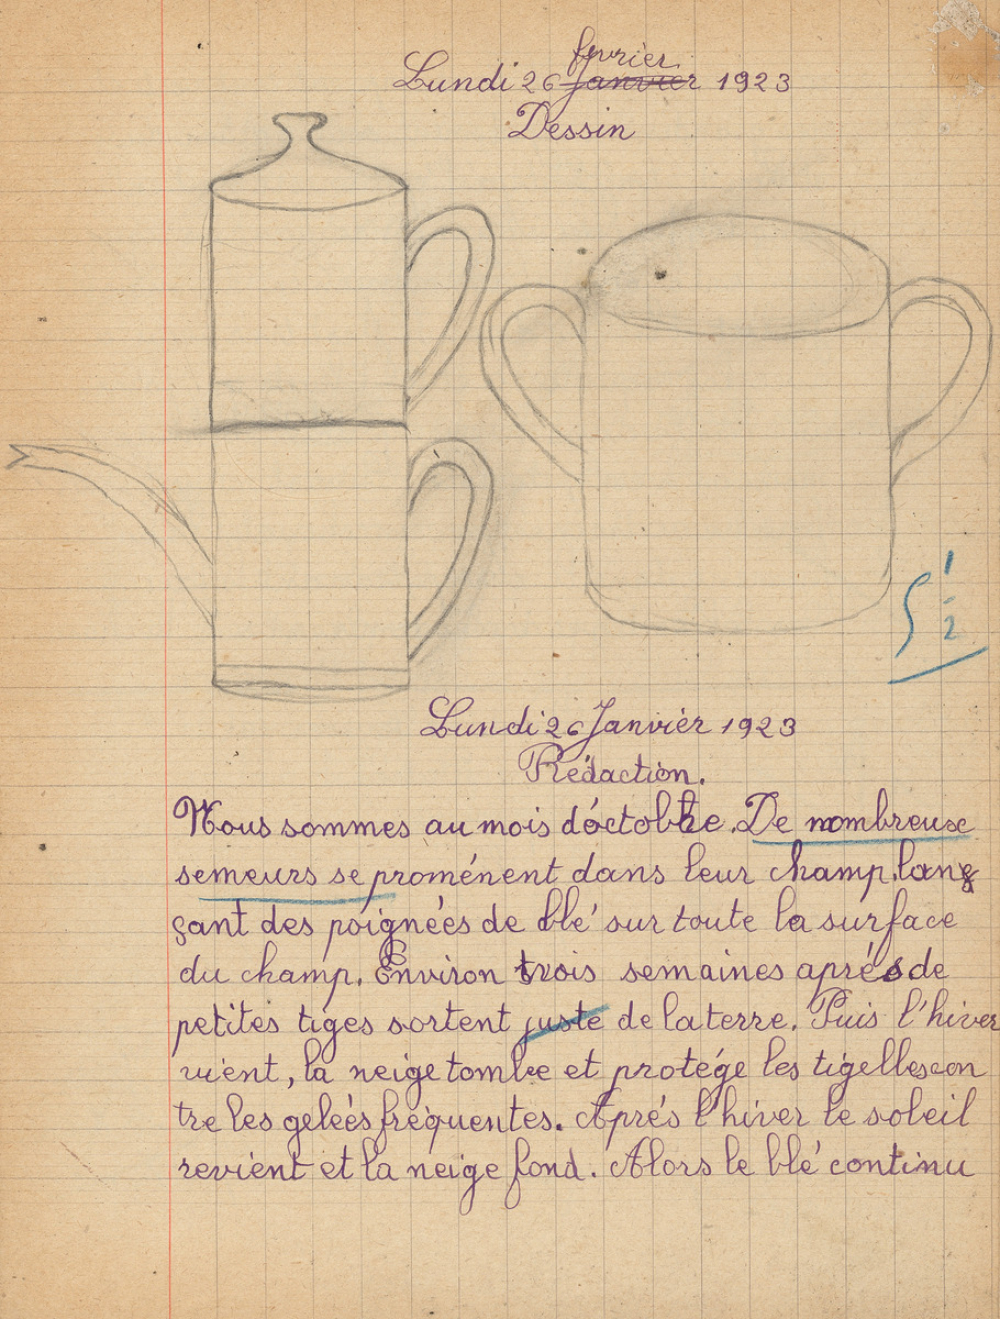 février
Lundi 26 janvier 1923
Dessin
5 1/2
Lundi 26 Janvièr 1923
Rédaction.
Nous sommes au mois d'octobre. De nombreuse
semeurs se proménent dans leur champ, lan
çant des poignées de blé sur toute la surface
du champ. Environ trois semaines aprés de
petites tiges sortent juste de la terre. Puis l'hiver
vient, la neige tombe et protége les tigelles con
tre les geleés fréquentes. Aprés l'hiver le soleil
revient et la neige fond. Alors le blé continu